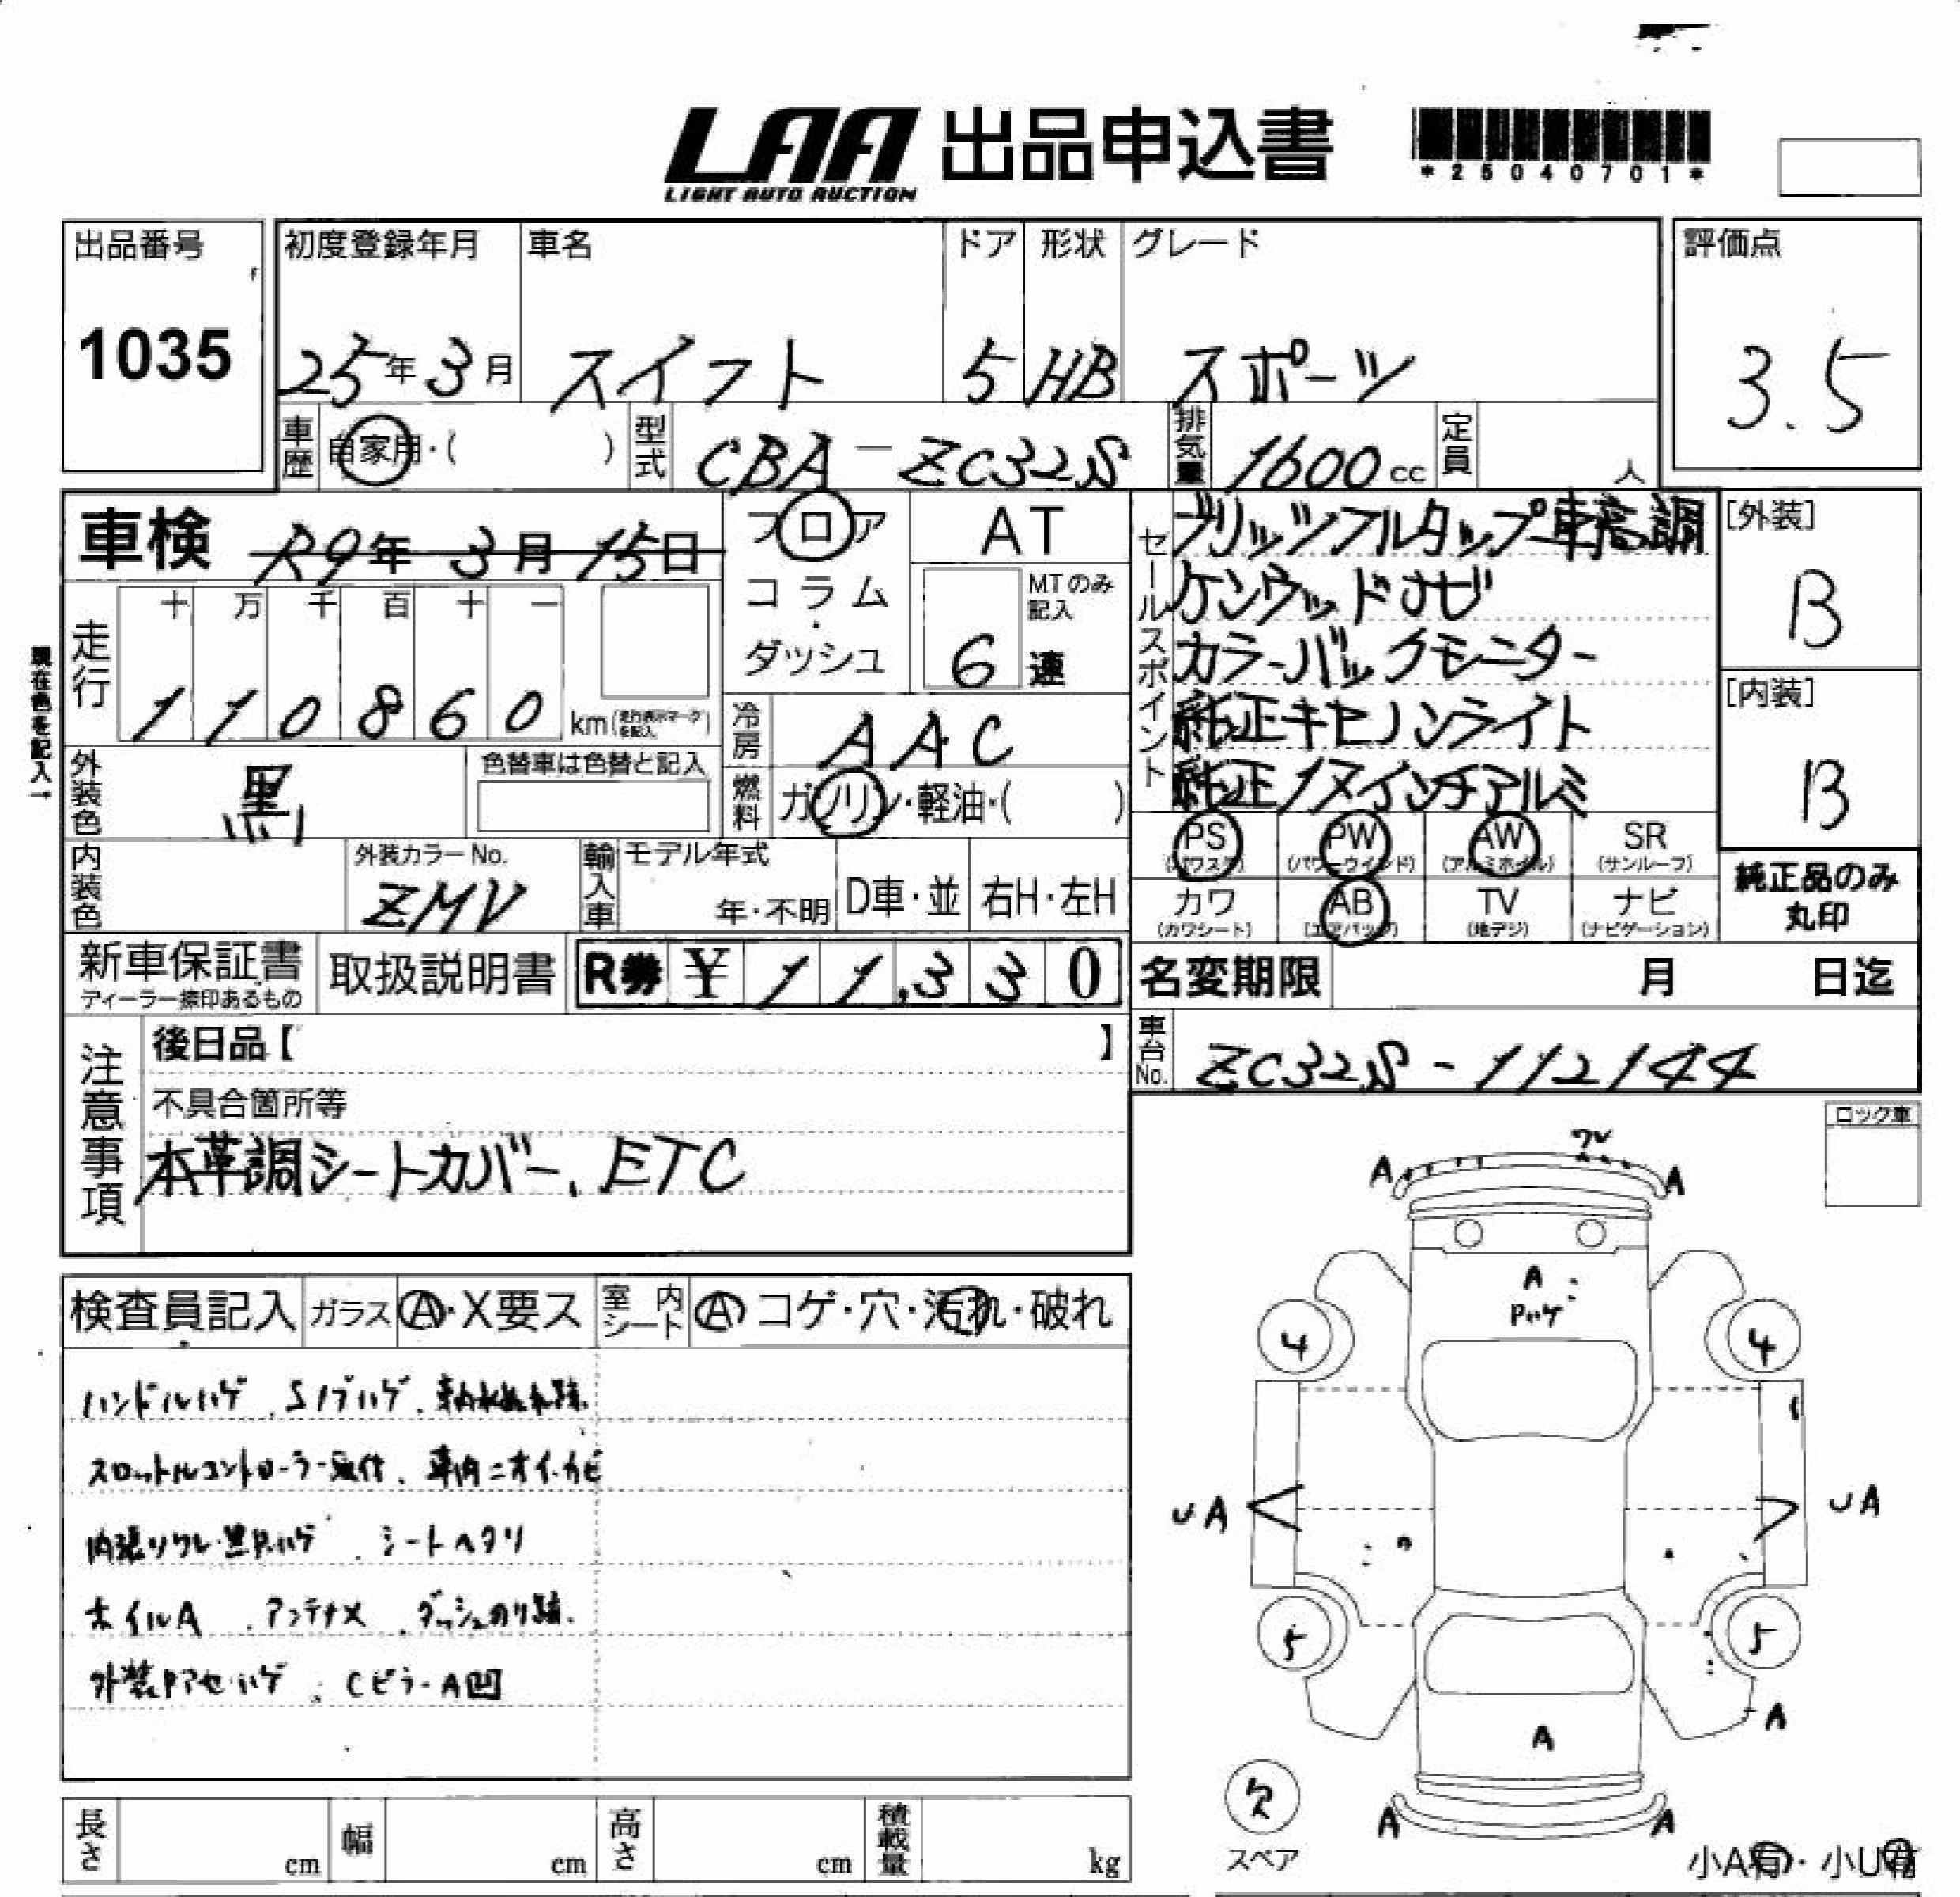 LAA 出品申込書
LIGHT AUTO AUCTION
*25040701*
出品番号
1035
初度登録年月
25年3月
車名
スイフト
ドア
5
形状
HB
グレード
スポーツ
評価点
3.5
車歴
自家用・( )
型式
CBA-ZC32S
排気量
1600cc
定員
人
車検 R9年3月15日
フロア
コラム・
ダッシュ
AT
MTのみ記入
6速
セールスポイント
ブリッツフルタップ車高調
ケンウッドナビ
カラーバックモニター
純正キセノンライト
純正17インチアルミ
[外装]
B
[内装]
B
現在色を記入→
走行
十 万 千 百 十 一
1 1 0 8 6 0 km(走行表示マークを記入)
冷房
AAC
燃料
ガソリン・軽油・( )
外装色
黒
色替車は色替と記入
内装色
外装カラーNo.
ZMV
輸入車
モデル年式
年・不明
D車・並
右H・左H
PS (パワステ)
PW (パワーウインド)
AW (アルミホイル)
SR (サンルーフ)
カワ (カワシート)
AB (エアバッグ)
TV (地デジ)
ナビ (ナビゲーション)
純正品のみ
丸印
新車保証書
ディーラー捺印あるもの
取扱説明書
R券 ¥11,330
名変期限 月 日迄
車台No.
ZC32S-112144
注意事項
後日品【 】
不具合箇所等
本革調シートカバー、ETC
ロック車
検査員記入
ガラス
A・X要ス
室内シート
A コゲ・穴・汚れ・破れ
ハンドルハゲ、Sノブハゲ、
スロットルコントローラー取付、車内ニオイ・カビ
シートヘタリ
ホイルA、アンテナX、ダッシュのり跡、
外装Pアセ・ハゲ、CピラーA凹
A
A
A
Pハゲ
4
4
UA
UA
5
5
A
A
欠
スペア
A
A
小A有・小U有
長さ cm
幅 cm
高さ cm
積載量 kg